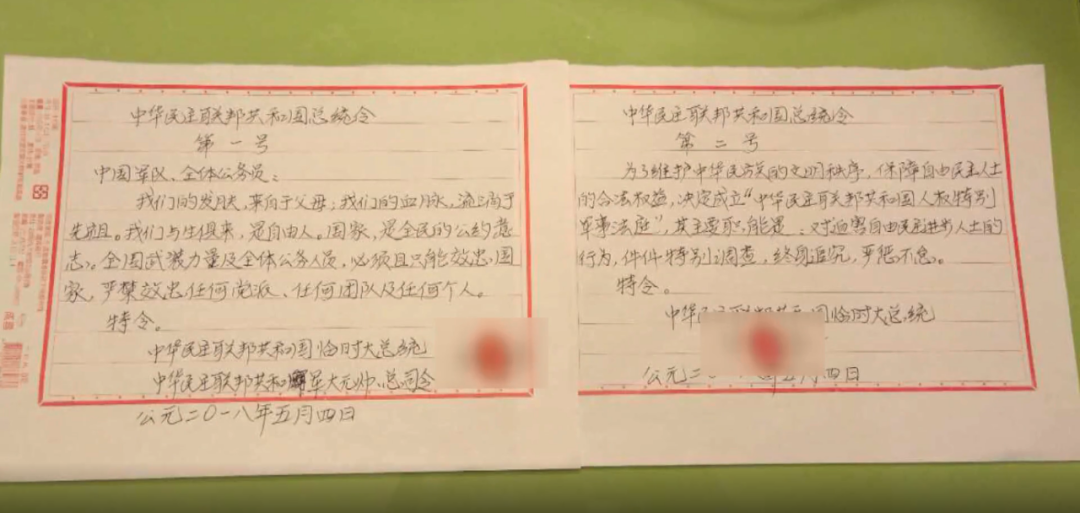 中华民主联邦共和国总统令
第一号
中国军队、全体公务员:
我们的发肤,来自于父母;我们的血脉,流淌于
先祖。我们与生俱来,是自由人。国家,是全民的公约意
志。全国武装力量及全体公务人员,必须且只能效忠国
家,严禁效忠任何党派、任何团队及任何个人。
特令。
中华民主联邦共和国临时大总统
中华民主联邦共和国军大元帅、总司令
公元二〇一八年五月四日
中华民主联邦共和国总统令
第二号
为了维护中华民族的文明秩序,保障自由民主人士
的合法权益,决定成立“中华民主联邦共和国人权特别
军事法庭”,其主要职能是:对迫害自由民主进步人士的
行为,件件特别调查,终身追究,严惩不怠。
特令。
中华民主联邦共和国临时大总统
公元二 年五月四日